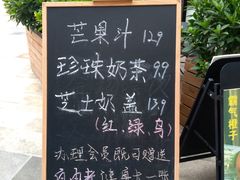 芒果汁 12.9
珍珠奶茶 9.9
芝士奶盖 13.9
(红、绿、乌)
办理会员既可赠送
霸气橙子